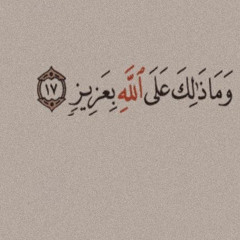 وَمَا ذَٰلِكَ عَلَى ٱللَّهِ بِعَزِيزٍ ١٧